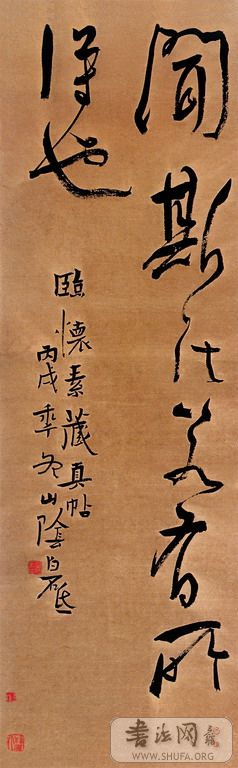 聞斯法若有所
得也
臨懷素藏真帖
丙戌年冬山陰白砥
書法网
WWW.SHUFA.ORG